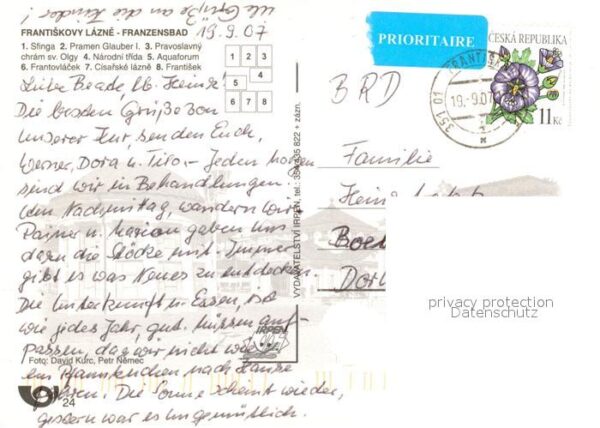 alle Grüße an die Kinder!
FRANTIŠKOVY LÁZNĚ - FRANZENSBAD
19.9.07
1. Sfinga 2. Pramen Glauber I. 3. Pravoslavný
chrám sv. Olgy 4. Národní třída 5. Aquaforum
6. Frantovláček 7. Císařské lázně 8. František
1 2 3
5 4
6 7 8
Liebe Beate, lb. Heinz!
Die besten Grüße von
unserer Kur, senden Euch,
Werner, Dora u. Tino. Jeden
sind wir in Behandlungen
den Nachmittag, wandern wir
Rainer u. Marion gaben uns
dazu die Stöcke mit. Immer
gibt es was Neues zu entdecken.
Die Unterkunft u. Essen, ist
wie jedes Jahr, gut. Müssen auf-
passen, das wir nicht wie
ein Pfannkuchen nach Hause
Die Sonne scheint wieder,
gestern war es ungemütlich.
Foto: David Kurc, Petr Němec
24
VYDAVATELSTVÍ IRPEN, tel.: 354 435 822 + zázn.
IRPEN
PRIORITAIRE
ČESKÁ REPUBLIKA
11 Kč
351 01
19.-9.07
BRD
Familie
privacy protection
Datenschutz